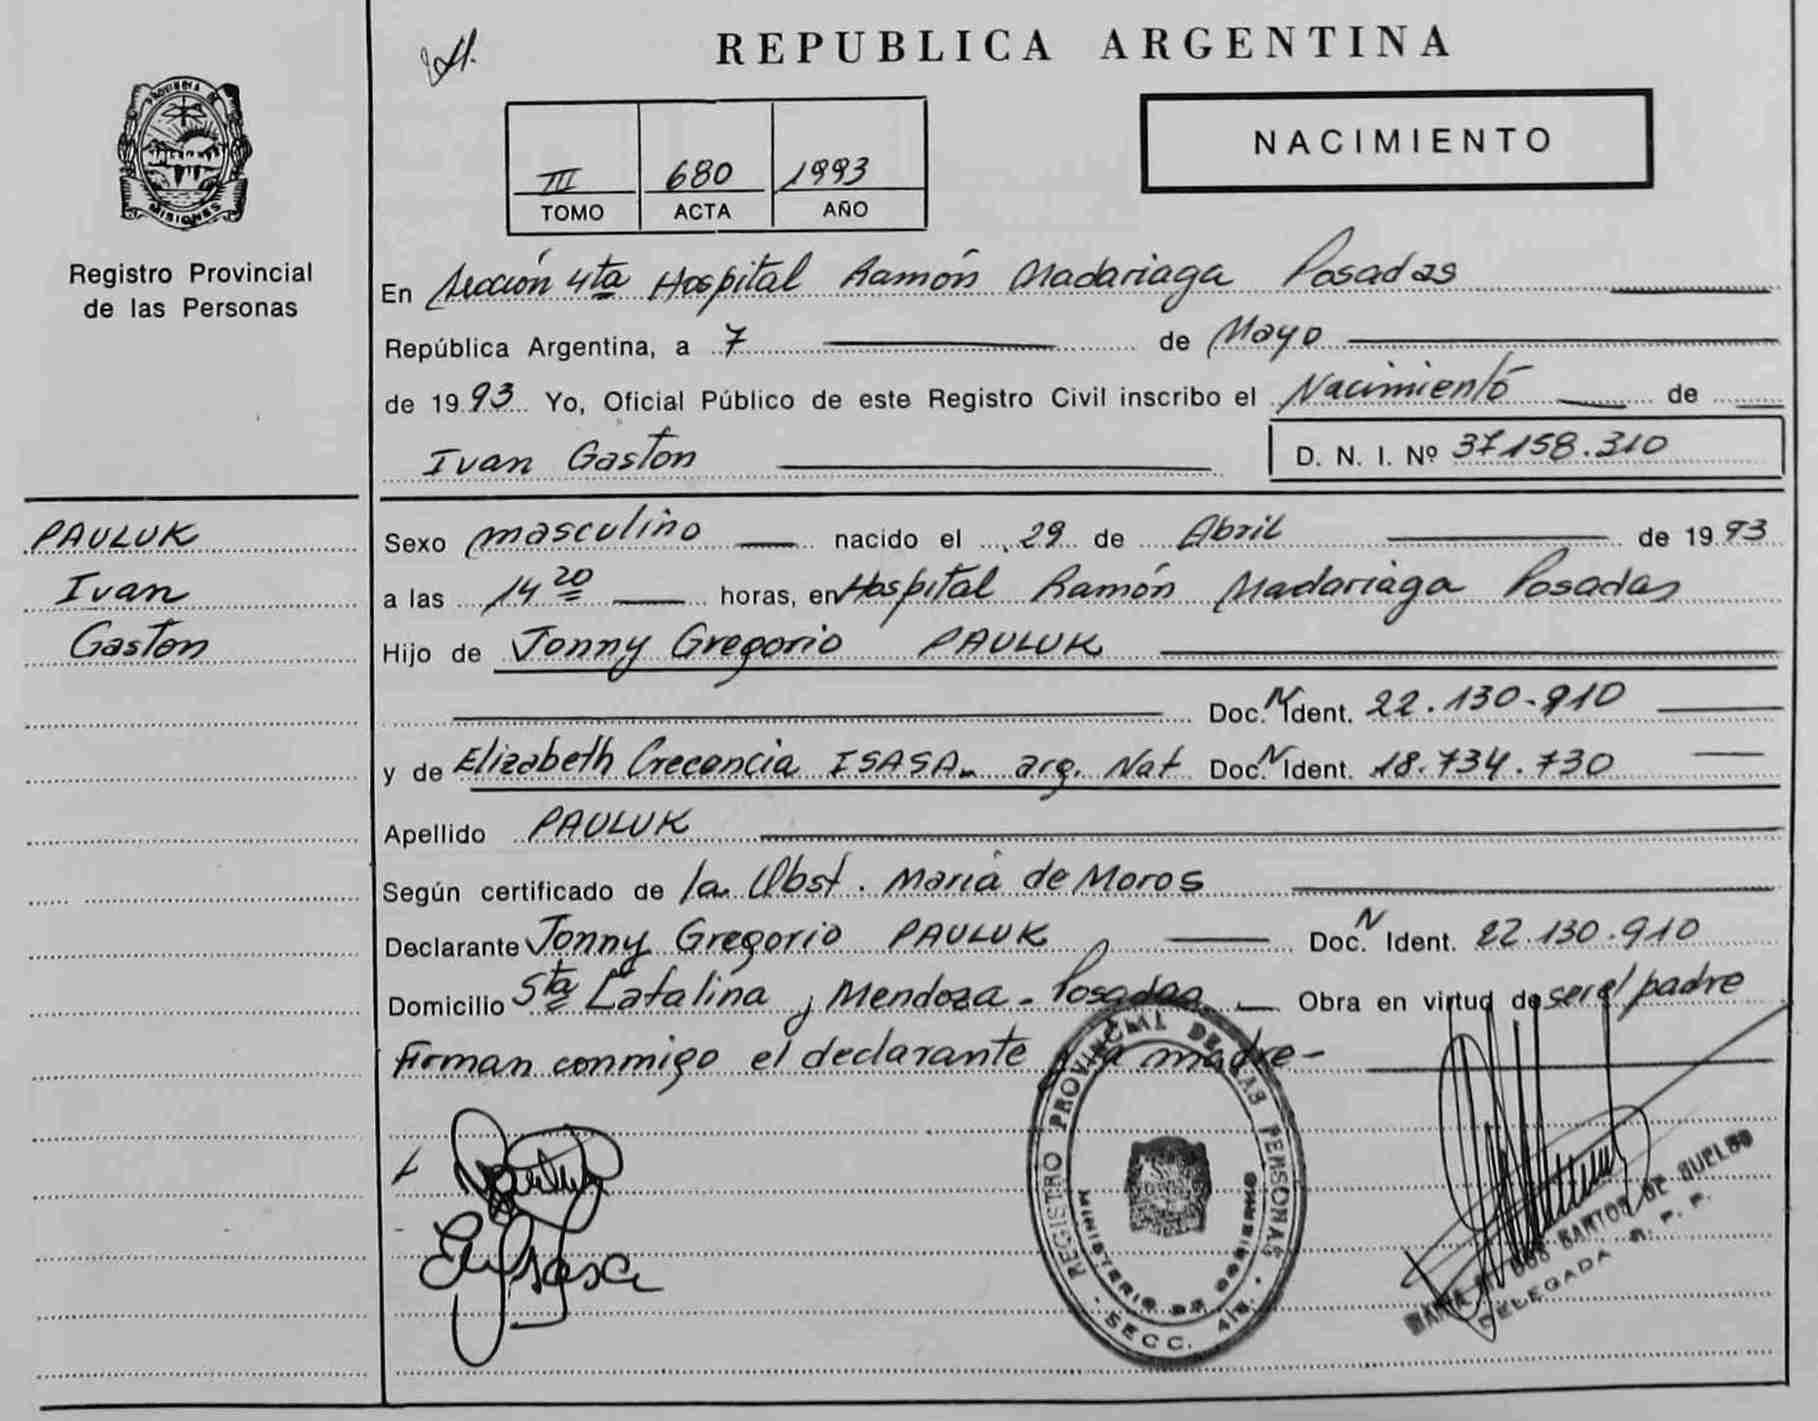 REPUBLICA ARGENTINA
PROVINCIA DE
MISIONES
Registro Provincial
de las Personas
III 680 1993
TOMO ACTA AÑO
NACIMIENTO
En Sección 4ta Hospital Ramón Madariaga Posadas
República Argentina, a 7 de Mayo
de 1993 Yo, Oficial Público de este Registro Civil inscribo el Nacimiento de
Ivan Gaston D. N. I. Nº 37158.310
PAULUK
Ivan
Gaston
Sexo masculino nacido el 29 de Abril de 1993
a las 14 20 horas, en Hospital Ramón Madariaga Posadas
Hijo de Jonny Gregorio PAULUK
Doc. N Ident. 22.130.910
y de Elizabeth Crecencia ISASA. arg. Nat Doc. N Ident. 18.734.730
Apellido PAULUK
Según certificado de la Obst. Maria de Moros
Declarante Jonny Gregorio PAULUK Doc. N Ident. 22.130.910
Domicilio Sta Catalina y Mendoza - Posadas Obra en virtud de ser el padre
Firman conmigo el declarante y la madre -
REGISTRO PROVINCIAL DE LAS PERSONAS
MINISTERIO DE GOBIERNO
SECC. 4ta.
DOS SANTOS DE BUELBO
DELEGADA R. P. P.